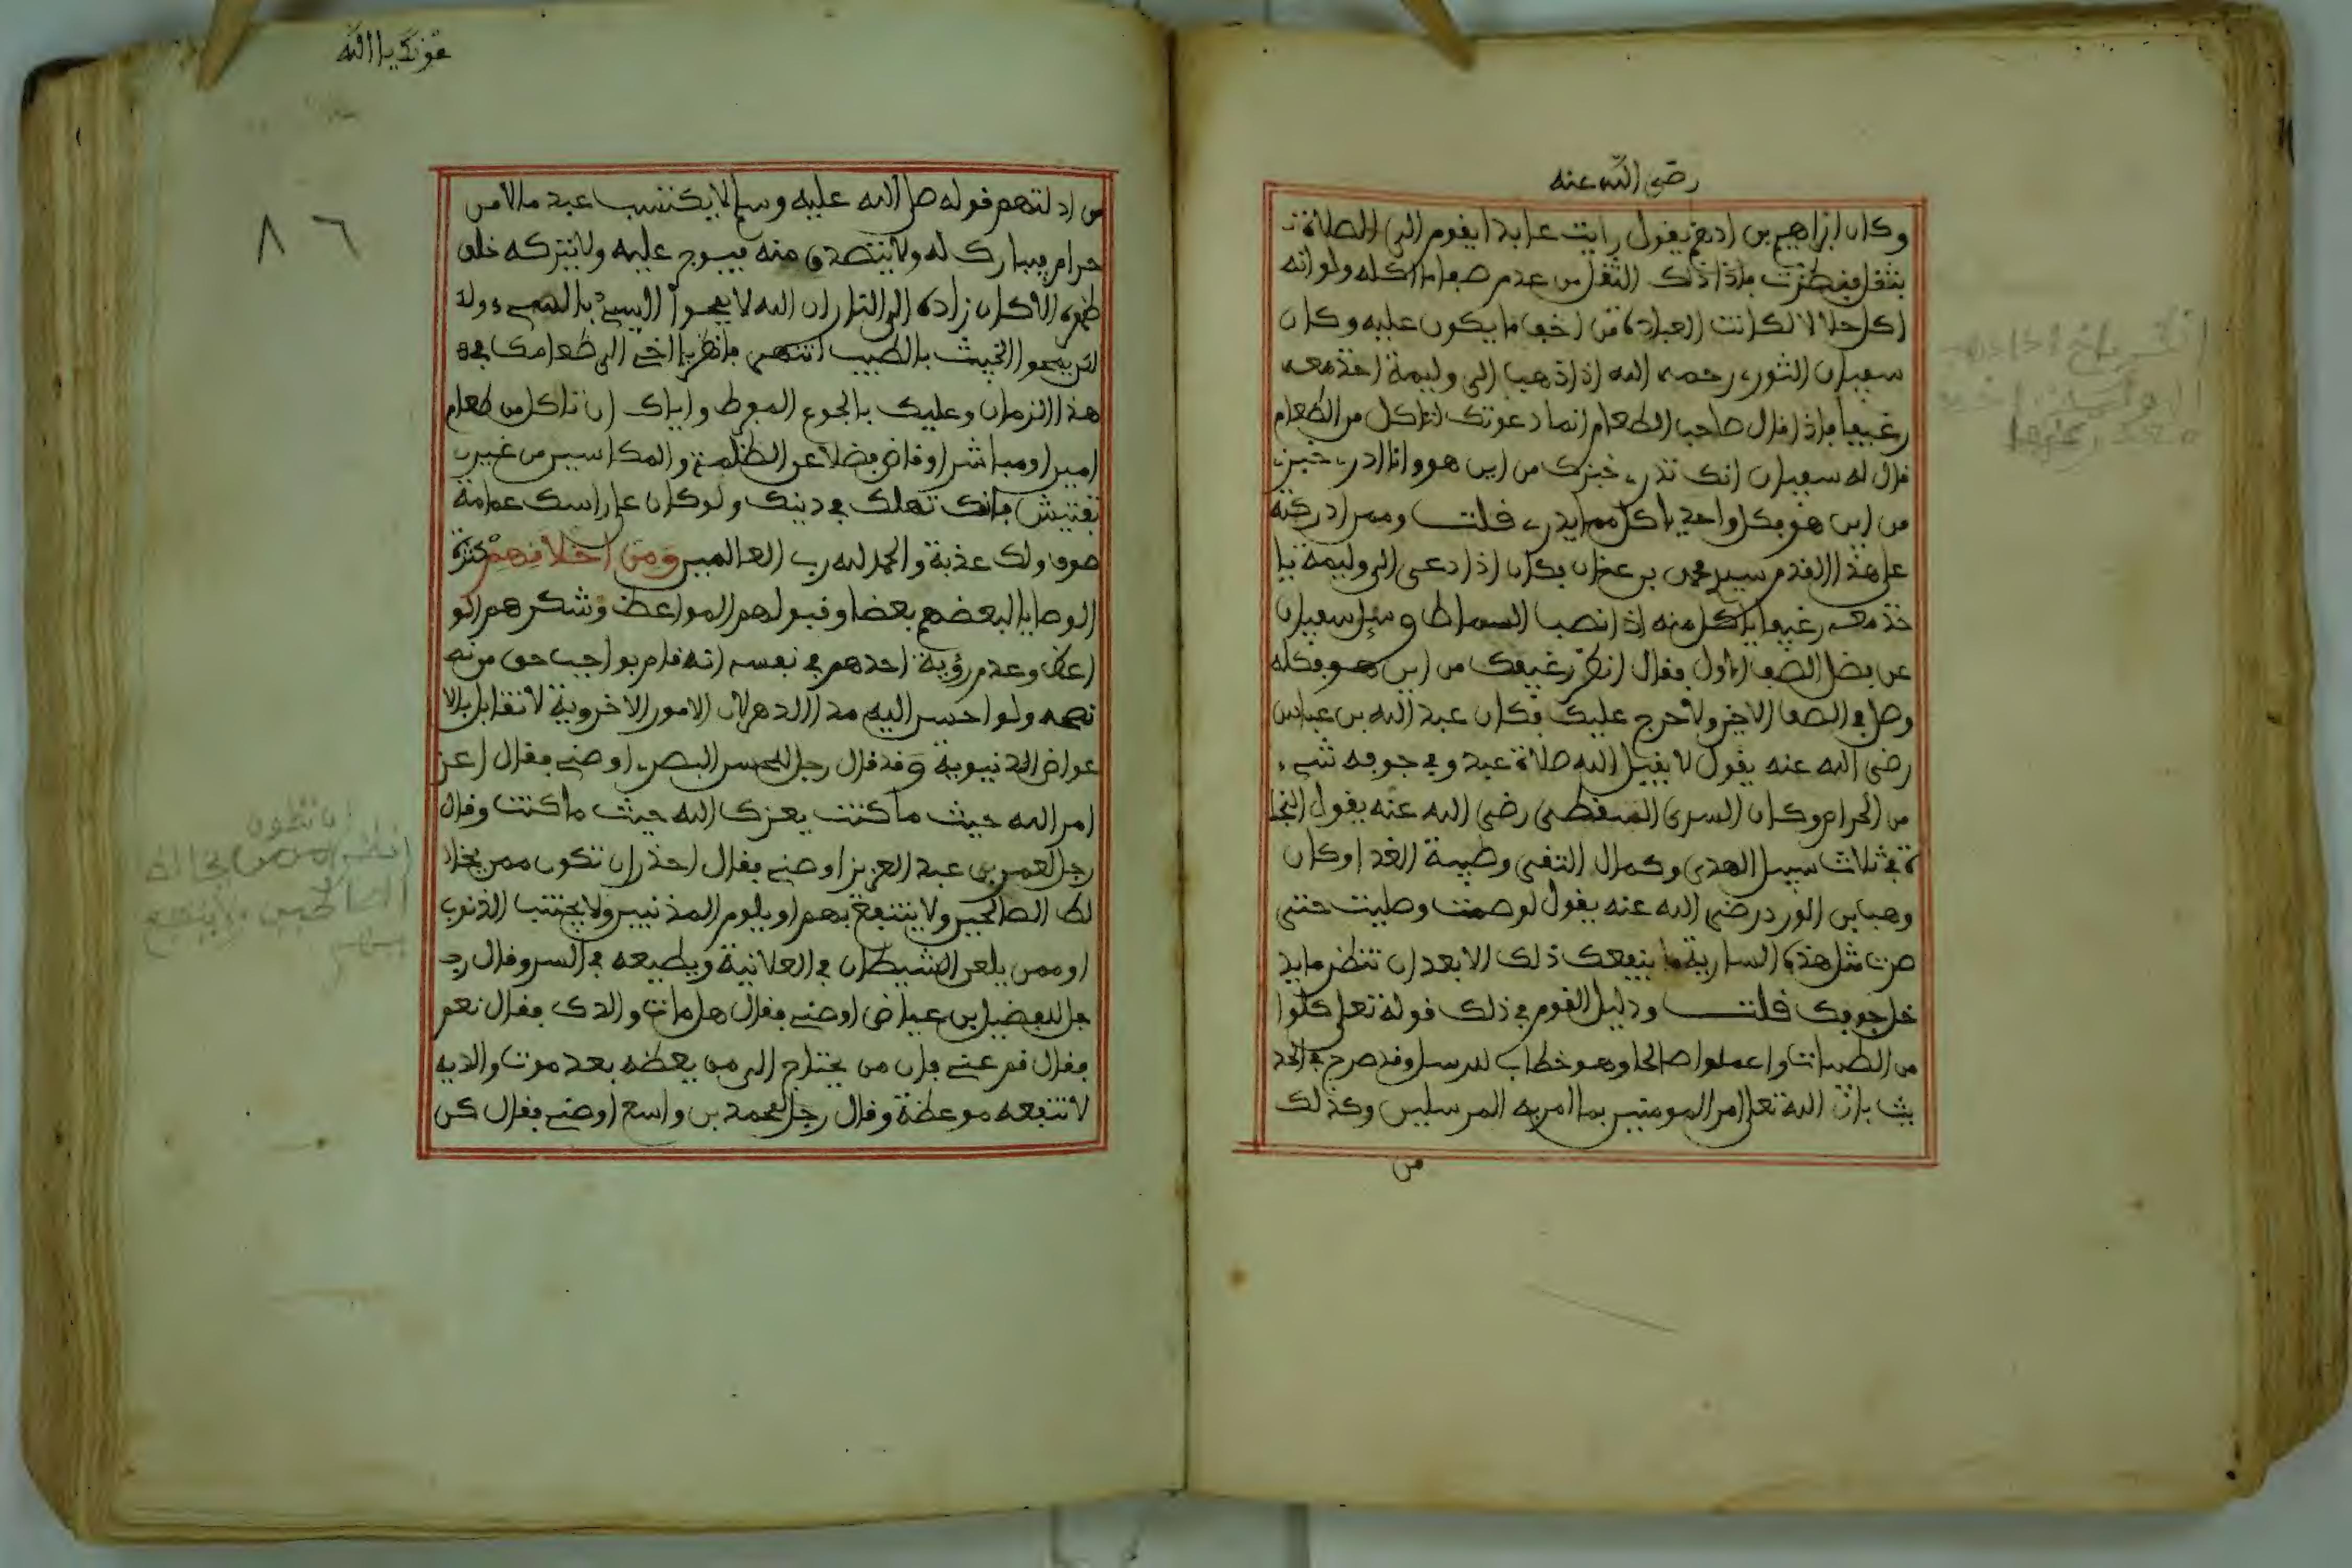 رضي الله عنه
وكان إبراهيم بن ادهم يقول رايت عابدا يقوم الى الصلاة
بثقل ففطنت فاذا ذلك الثقل من عدم صفا ما اكله ولو انه
اكل حلالا لكانت العبادة من اخف ما يكون عليه وكان
سفيان الثوري رحمه الله اذا ذهب الى وليمة اخذ معه
رغيفا فاذا قال صاحب الطعام انما دعوتك لتاكل من الطعام
قال له سفيان انك تدري خبزك من اين هو وانا ادري خبزي
من اين هو فكل واحد ياكل مما يدري قلت وممن ادركته
على هذا القدم سيدي محمد بن عنان فكان اذا دعى الى وليمة يا
خذ معه رغيفا ياكل منه اذا نصب السماط وسئل سفيان
عن فضل الصف الاول فقال انظر رغيفك من اين هو فكله
وصل في الصف الاخير ولا حرج عليك وكان عبد الله بن عباس
رضي الله عنه يقول لا يقبل الله صلاة عبد وفي جوفه شيء
من الحرام وكان السرى السقطي رضي الله عنه يقول النجا
ة في ثلاث سبيل الهدى وكمال التقى وطيبة الغدا وكان
وهب بن الورد رضي الله عنه يقول لو صمت وصليت حتى
صرت مثل هذه السارية ما ينفعك ذلك الا بعد ان تنظر ما يد
خل جوفك قلت ودليل القوم في ذلك قوله تعلى كلوا
من الطيبات واعملوا صالحا وهو خطاب للرسل وقد صرح في الحد
يث بان الله تعلى امر المومنين بما امر به المرسلين وكذلك
من
عونك يا الله
٨٦
من ادلتهم قوله صلى الله عليه وسلم لا يكتسب عبد مالا من
حرام فيبارك له ولا يتصدق منه فيوجر عليه ولا يتركه خلف
ظهره الا كان زاده الى النار ان الله لا يمحوا السيئ بالسيء ولا
كن يمحوا الخبيث بالطيب انتهى فانظر يا اخي الى طعامك في
هذا الزمان وعليك بالجوع المفرط واياك ان تاكل من طعام
امير او مباشر او قاض فضلا عن الظلمة والمكاسين من غير
تفتيش فانك تهلك في دينك ولو كان على راسك عمامة
صوف ولك عذبة والحمد لله رب العالمين ومن اخلاقهم كثرة
الوصايا لبعضهم بعضا وقبولهم المواعظ وشكرهم الو
اعظ وعدم رؤية احدهم في نفسه انه قام بواجب حق من
نصحه ولو احسن اليه مدا الدهر لان الامور الاخروية لا تقابل بالا
عواض الدنيوية وقد قال رجل للحسن البصري اوصني فقال اعز
امر الله حيث ما كنت يعزك الله حيث ما كنت وقال
رجل لعمر بن عبد العزيز اوصني فقال احذر ان تكون ممن يخا
لط الصالحين ولا ينتفع بهم او يلوم المذنبين ولا يجتنب الذنوب
او ممن يلعن الشيطان في العلانية ويطيعه في السر وقال ر
جل للفضيل بن عياض اوصني فقال هل مات والدك فقال نعم
فقال قم عني فان من يحتاج الى من يعظه بعد موت والديه
لا تنفعه موعظة وقال رجل لمحمد بن واسع اوصني فقال كن
ان تكون
الصالحين ولا ينتفع